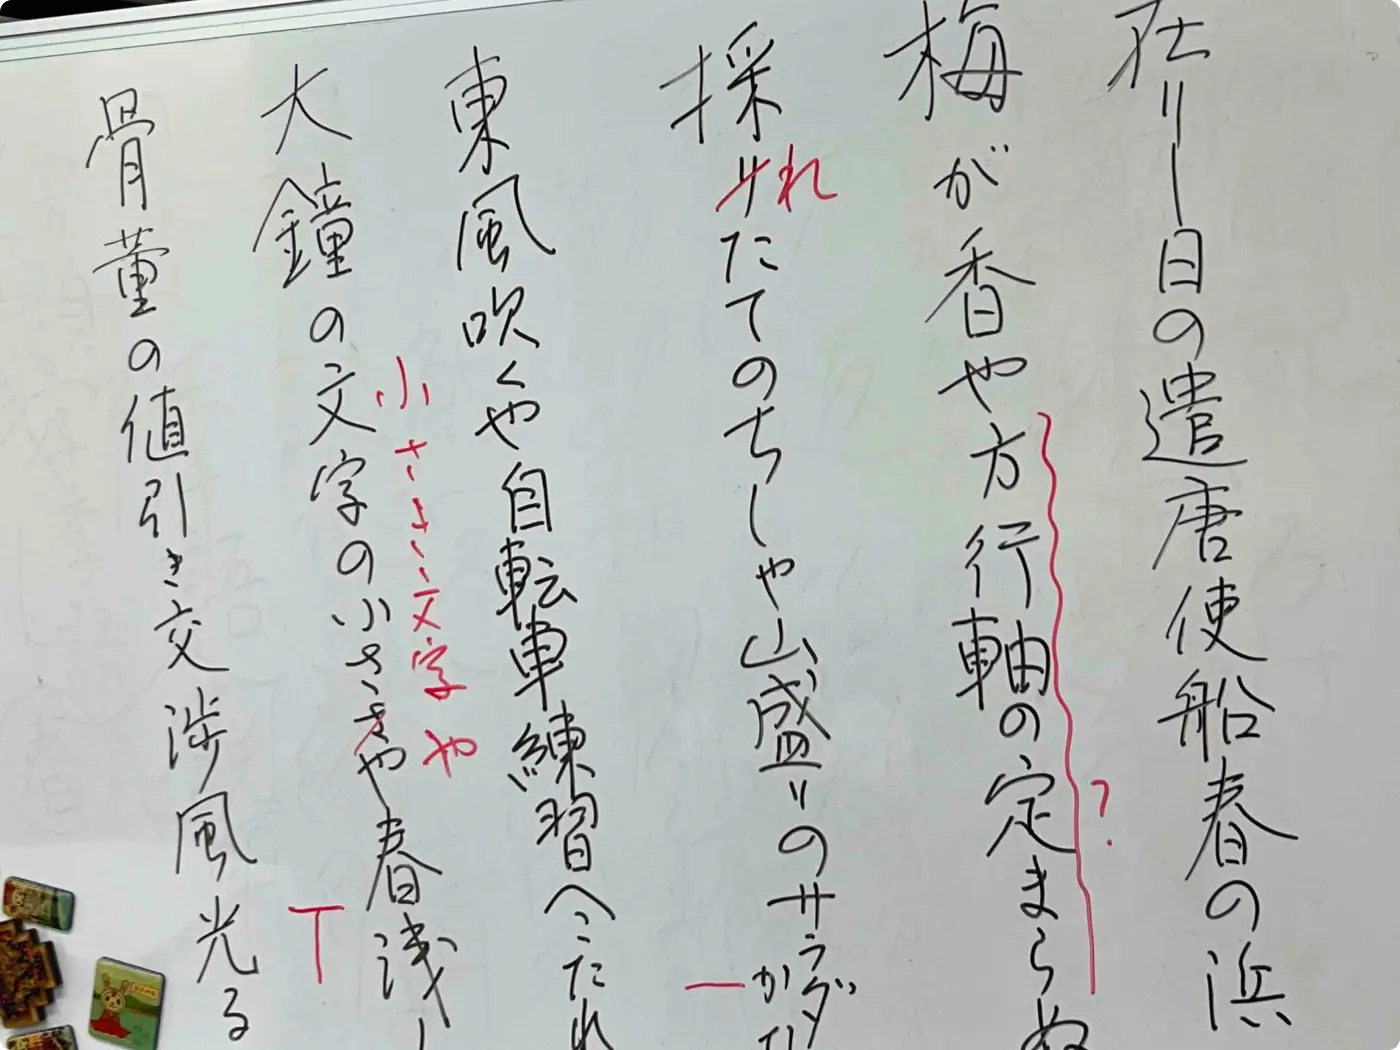 在りし日の遣唐使船春の浜
梅が香や方行軸の定まらぬ
?
採りれたてのちしや山盛りのサラダ
か
東風吹くや自転車練習へこたれ
小さき文字や
大鐘の文字の小ささや春浅し
T
骨董の値引き交渉風光る